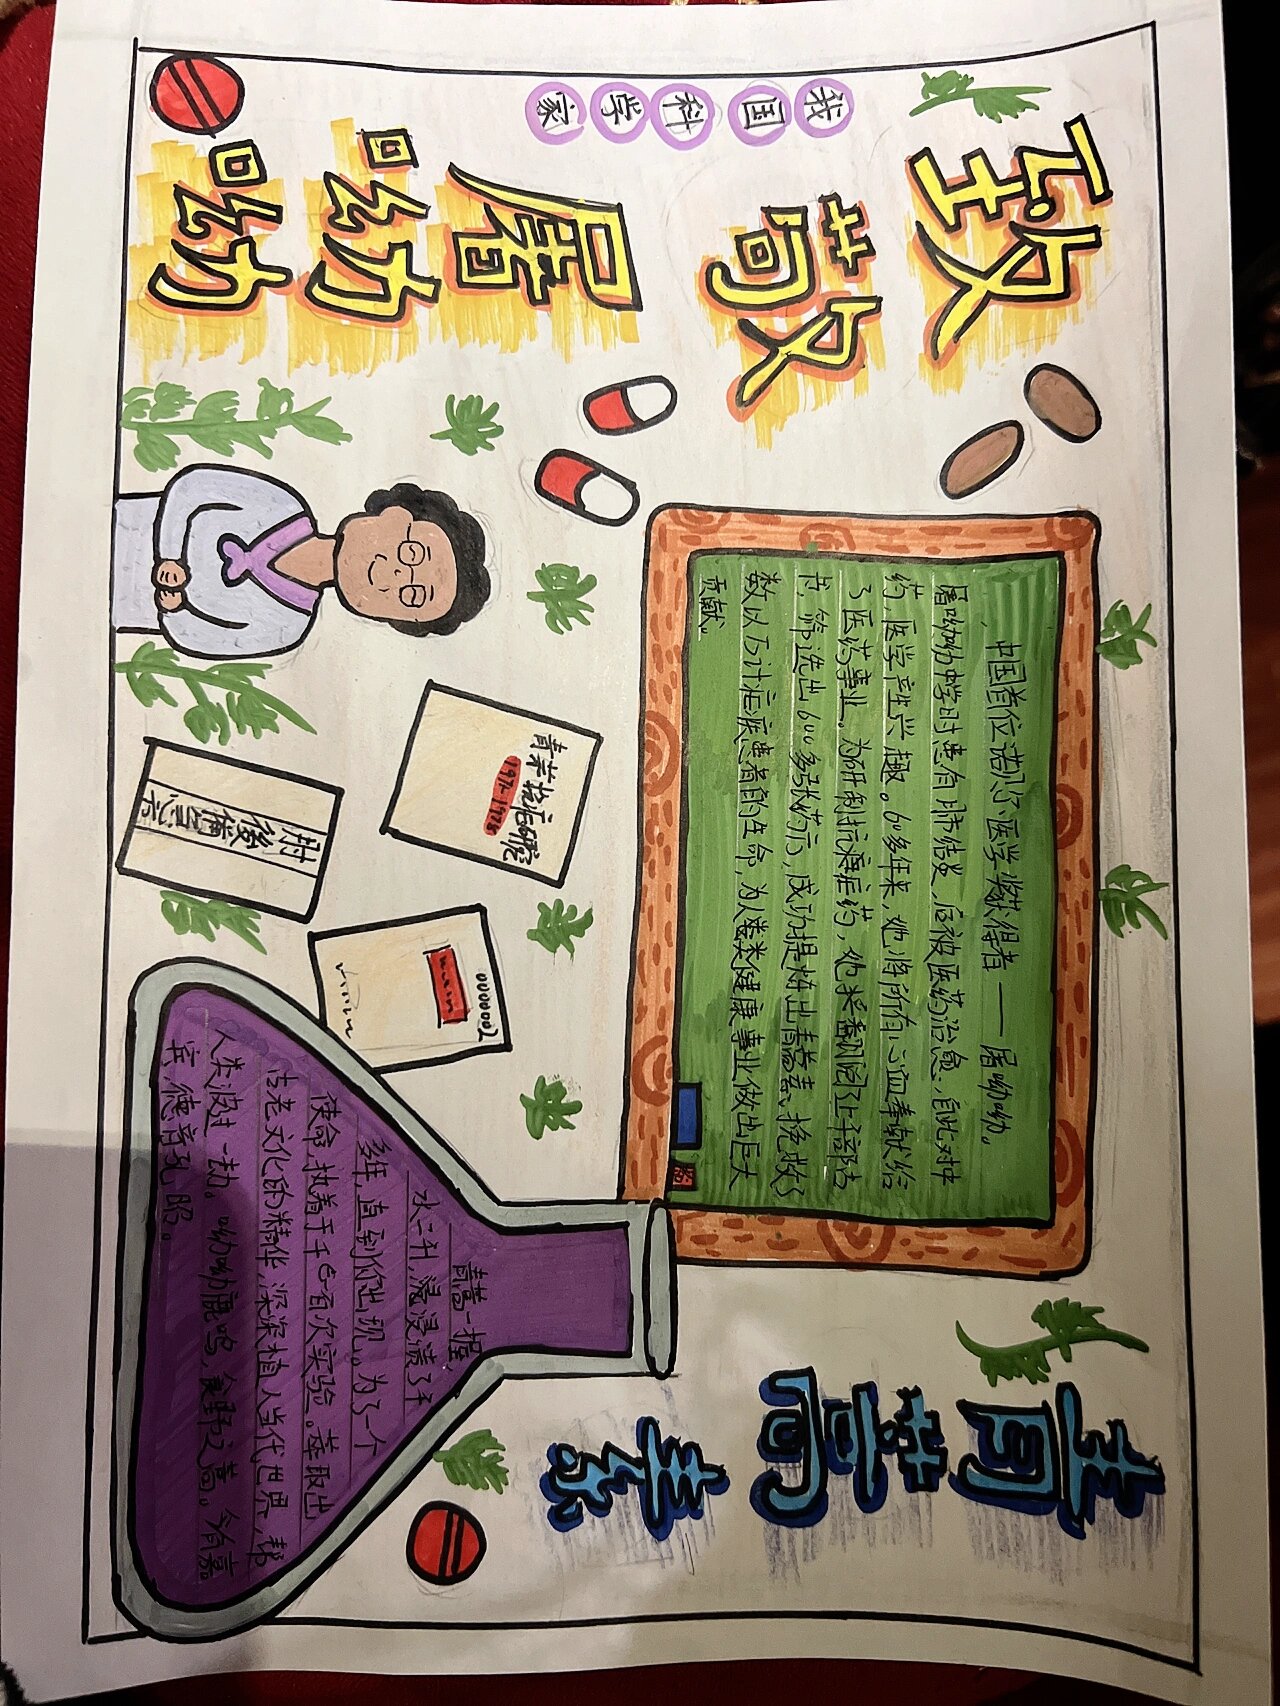 致敬
我国科学家
屠呦呦
中国首位诺贝尔医学奖获得者——屠呦呦。
屠呦呦中学时患有肺结,后被医药治愈:自此对中
药,医学产生兴趣。60多年来,她将所有心血奉献给
了医药事业。为研制抗疟药,她翻阅上千部古
书,筛选出600多张药方,成功提炼出青蒿素,挽救了
数以万计疟疾患者的生命,为人类健康事业做出巨大
贡献。
青蒿素
青蒿抗疟研究
1971-1978
肘後備急方
0000002
青蒿一握,
水一升,浸渍了千
年,直到你出现。为了一个
使命,执着于千百次实验。萃取出
古老文化的精华,深深植入当代世界,帮
人类渡过一劫。呦呦鹿鸣,食野之蒿。今有嘉
宾,德音孔昭。